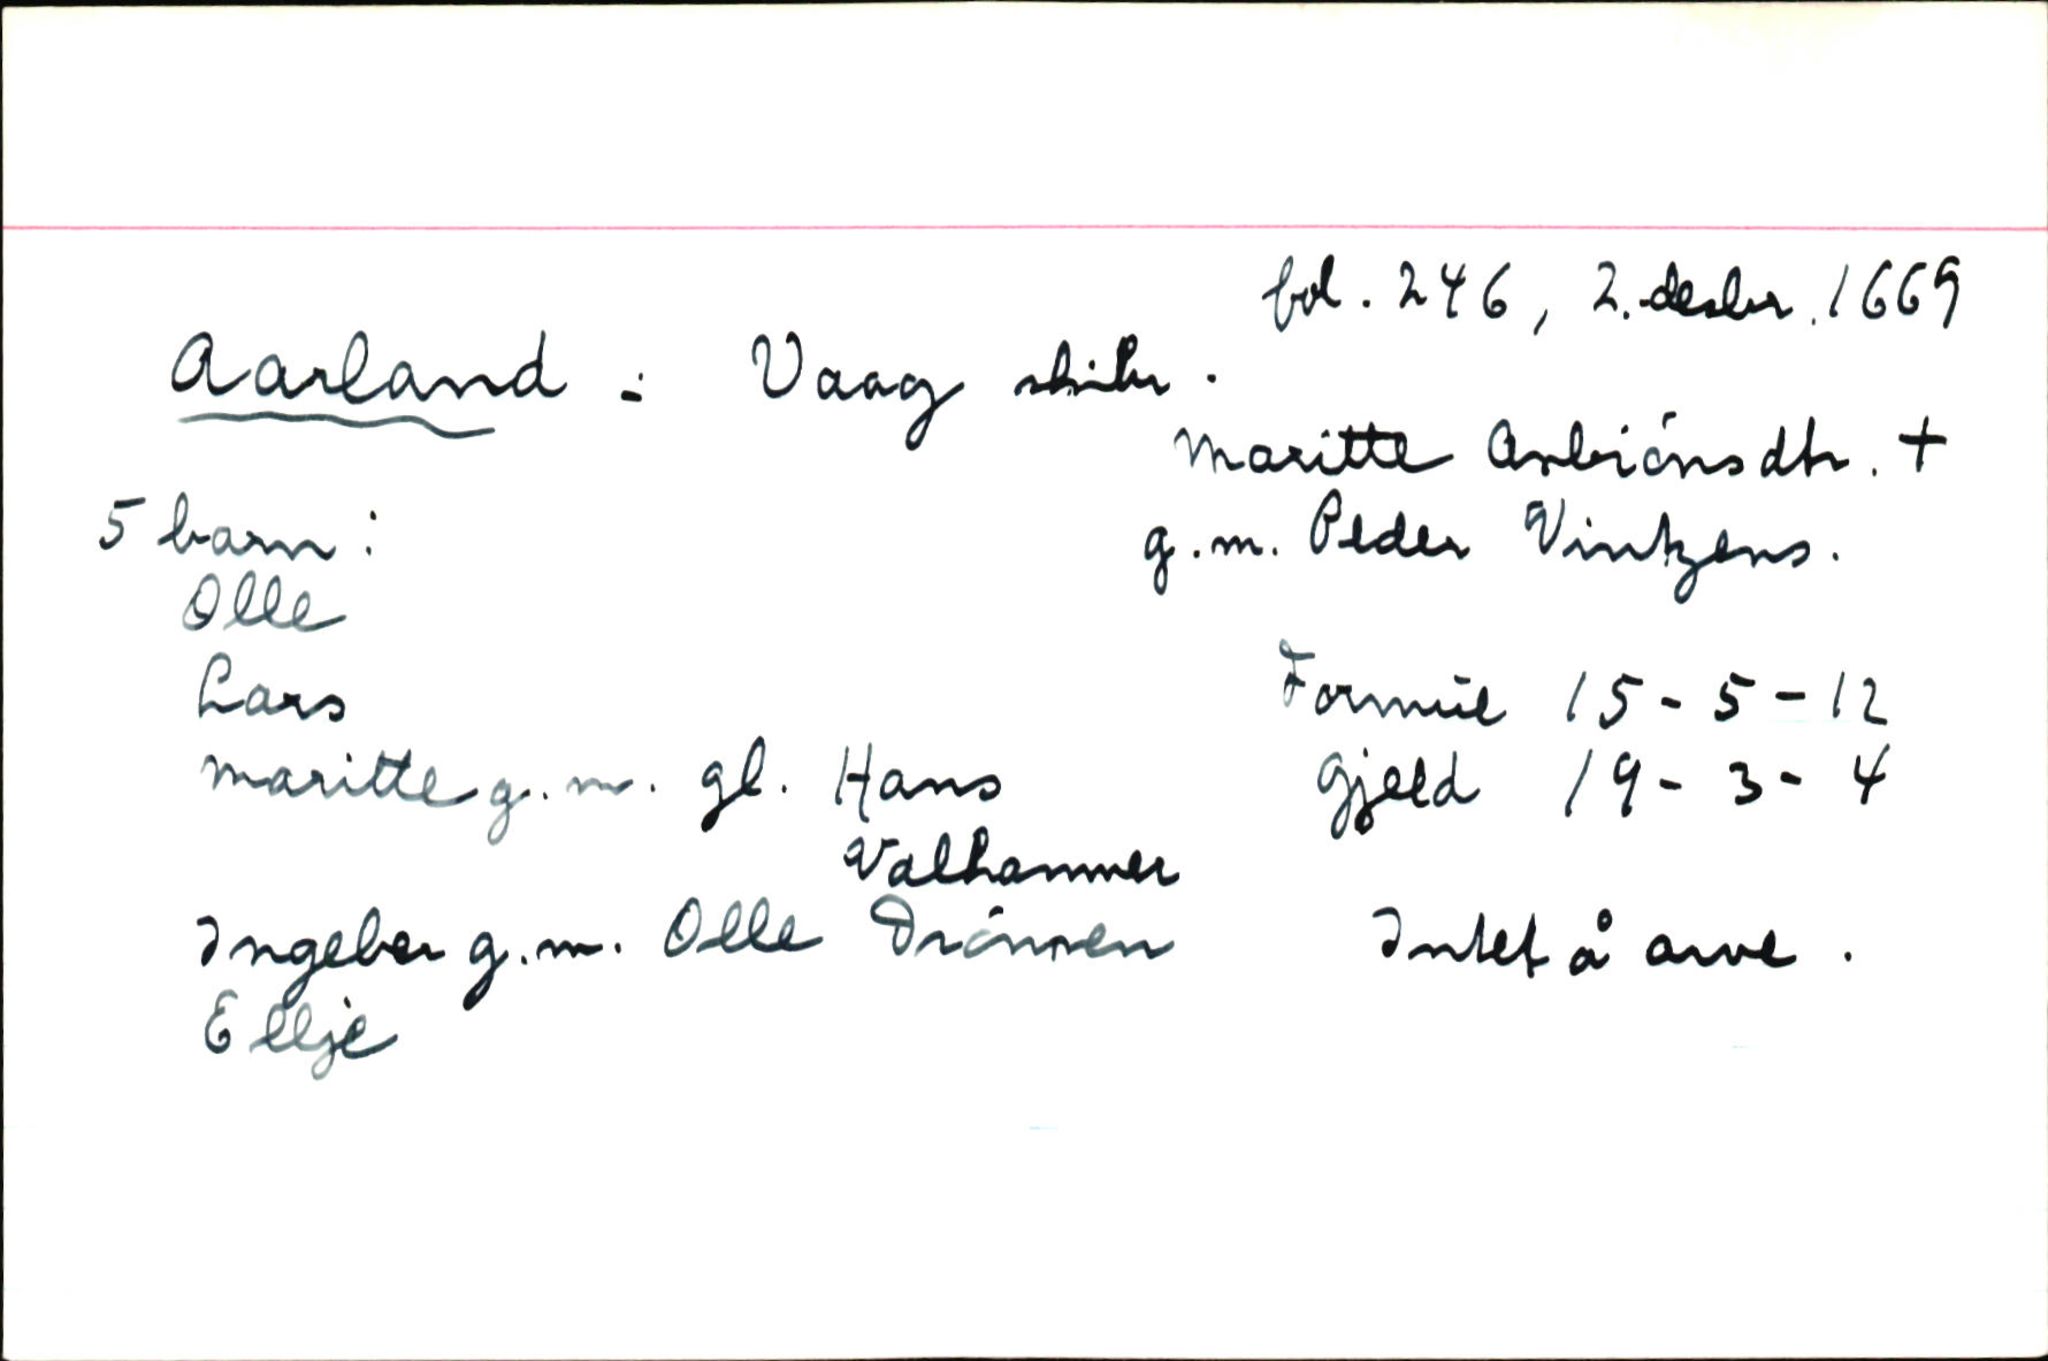 fol. 246, 2. desbr. 1669
Aarland : Vaag skibr.
Maritte Anbiónsdtr. +
5 barn :
g.m. Peder Vintzens.
Olle
Lars
Formúe 15 - 5 - 12
Maritte g.m. gl. Hans
Gjeld 19 - 3 - 4
Valhammer
Ingeber g.m. Olle Drónnen
Intet å arve.
Ellje